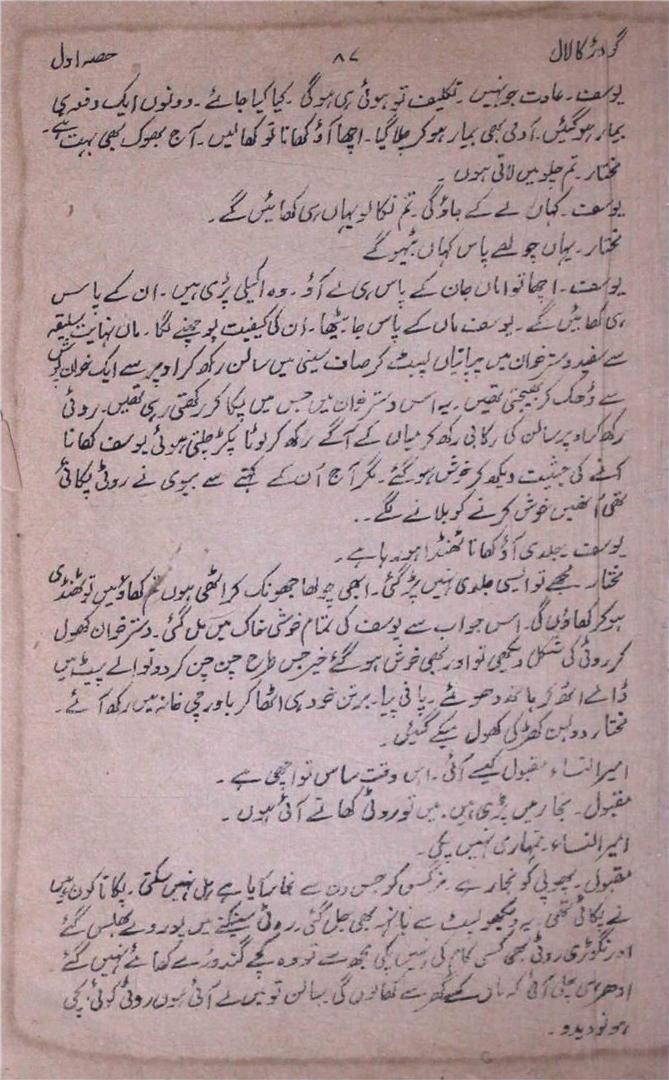 گودڑ کا لال ۸۷ حصہ اول
یوسف۔ عادت جو نہیں۔ تکلیف تو ہوئی ہی ہوگی۔ کیا کیا جائے۔ دونوں ایک دفعہ ہی
بیمار ہوگئیں۔ آدمی بھی بیمار ہوکر چلا گیا۔ اچھا آؤ کھانا تو کھالیں۔ آج بھوک بھی بہت ہے۔
مختار۔ تم چلو میں لاتی ہوں۔
یوسف۔ کہاں لے کے جاؤ گی۔ تم نکالو یہاں ہی کھائیں گے۔
مختار۔ یہاں چولھے پاس کہاں بیٹھو گے
یوسف۔ اچھا تو اماں جان کے پاس ہی لے آؤ۔ وہ اکیلی پڑی ہیں۔ ان کے پاس
ہی کھائیں گے۔ یوسف ماں کے پاس جا بیٹھا۔ اُن کی کیفیت پوچھنے لگا۔ ماں نہایت سلیقہ
سے سفید دسترخوان میں چپاتیاں لپیٹ کر صاف سینی میں سالن رکھ کر اوپر سے ایک خوان پوش
سے ڈھک کر بھیجتی تھیں۔ یہ اسی دسترخوان میں جس میں پکا کر رکھتی رہی تھیں۔ روٹی
رکھ کر اوپر سالن کی رکابی رکھ کر میاں کے آگے رکھ کر لوٹا پکڑ چلتی ہوئی یوسف کھانا
آنے کی حیثیت دیکھ کر خوش ہوگئے۔ مگر آج اُن کے کہنے سے بیوی نے روٹی پکائی
تھی انھیں خوش کرنے کو بلانے لگے۔
یوسف۔ جلدی آؤ کھانا ٹھنڈا ہو رہا ہے۔
مختار۔ مجھے تو ایسی جلدی نہیں پڑ گئی۔ ابھی چولھا جھونک کر اٹھی ہوں تم کھاؤ میں تو ٹھنڈی
ہوکر کھاؤں گی۔ اس جواب سے یوسف کی تمام خوشی خاک میں مل گئی۔ دسترخوان کھول
کر روٹی کی شکل دیکھی تو اور بھی خوش ہوگئے خیر جس طرح چن چن کر دو نوالے پیٹ میں
ڈالے اٹھ کر ہاتھ دھوئے۔ پانی پیا۔ برتن خود ہی اٹھا کر باورچی خانہ میں رکھ آئے۔
مختار دولہن کھڑکی کھول میکے گئی۔
امیر النساء مقبول کیسے آئی۔ اس وقت ساس تو اچھی ہے۔
مقبول۔ بخار میں پڑی ہیں۔ میں تو روٹی کھانے آئی ہوں۔
امیر النساء۔ تمہاری نہیں پکی۔
مقبول۔ پھوپی کو بخار ہے۔ نرگس کو جس دن سے بخار آیا ہے ہل نہیں سکتی۔ پکاتا کون میں
نے پکائی تھی۔ یہ دیکھو لپٹ سے ہاتھ بھی جل گئی۔ روٹی سینکنے میں پوروے جھلس گئے
اور نگوڑی روٹی بھی کسی کام کی نہیں پکی مجھ سے تو وہ کچے گندورے کھائے نہیں گئے
ادھر ہی چلی آئی کہ ماں کے گھر سے کھالوں گی۔ سالن تو میں لے آئی ہوں روٹی کوئی پکی
ہو تو دیدو۔